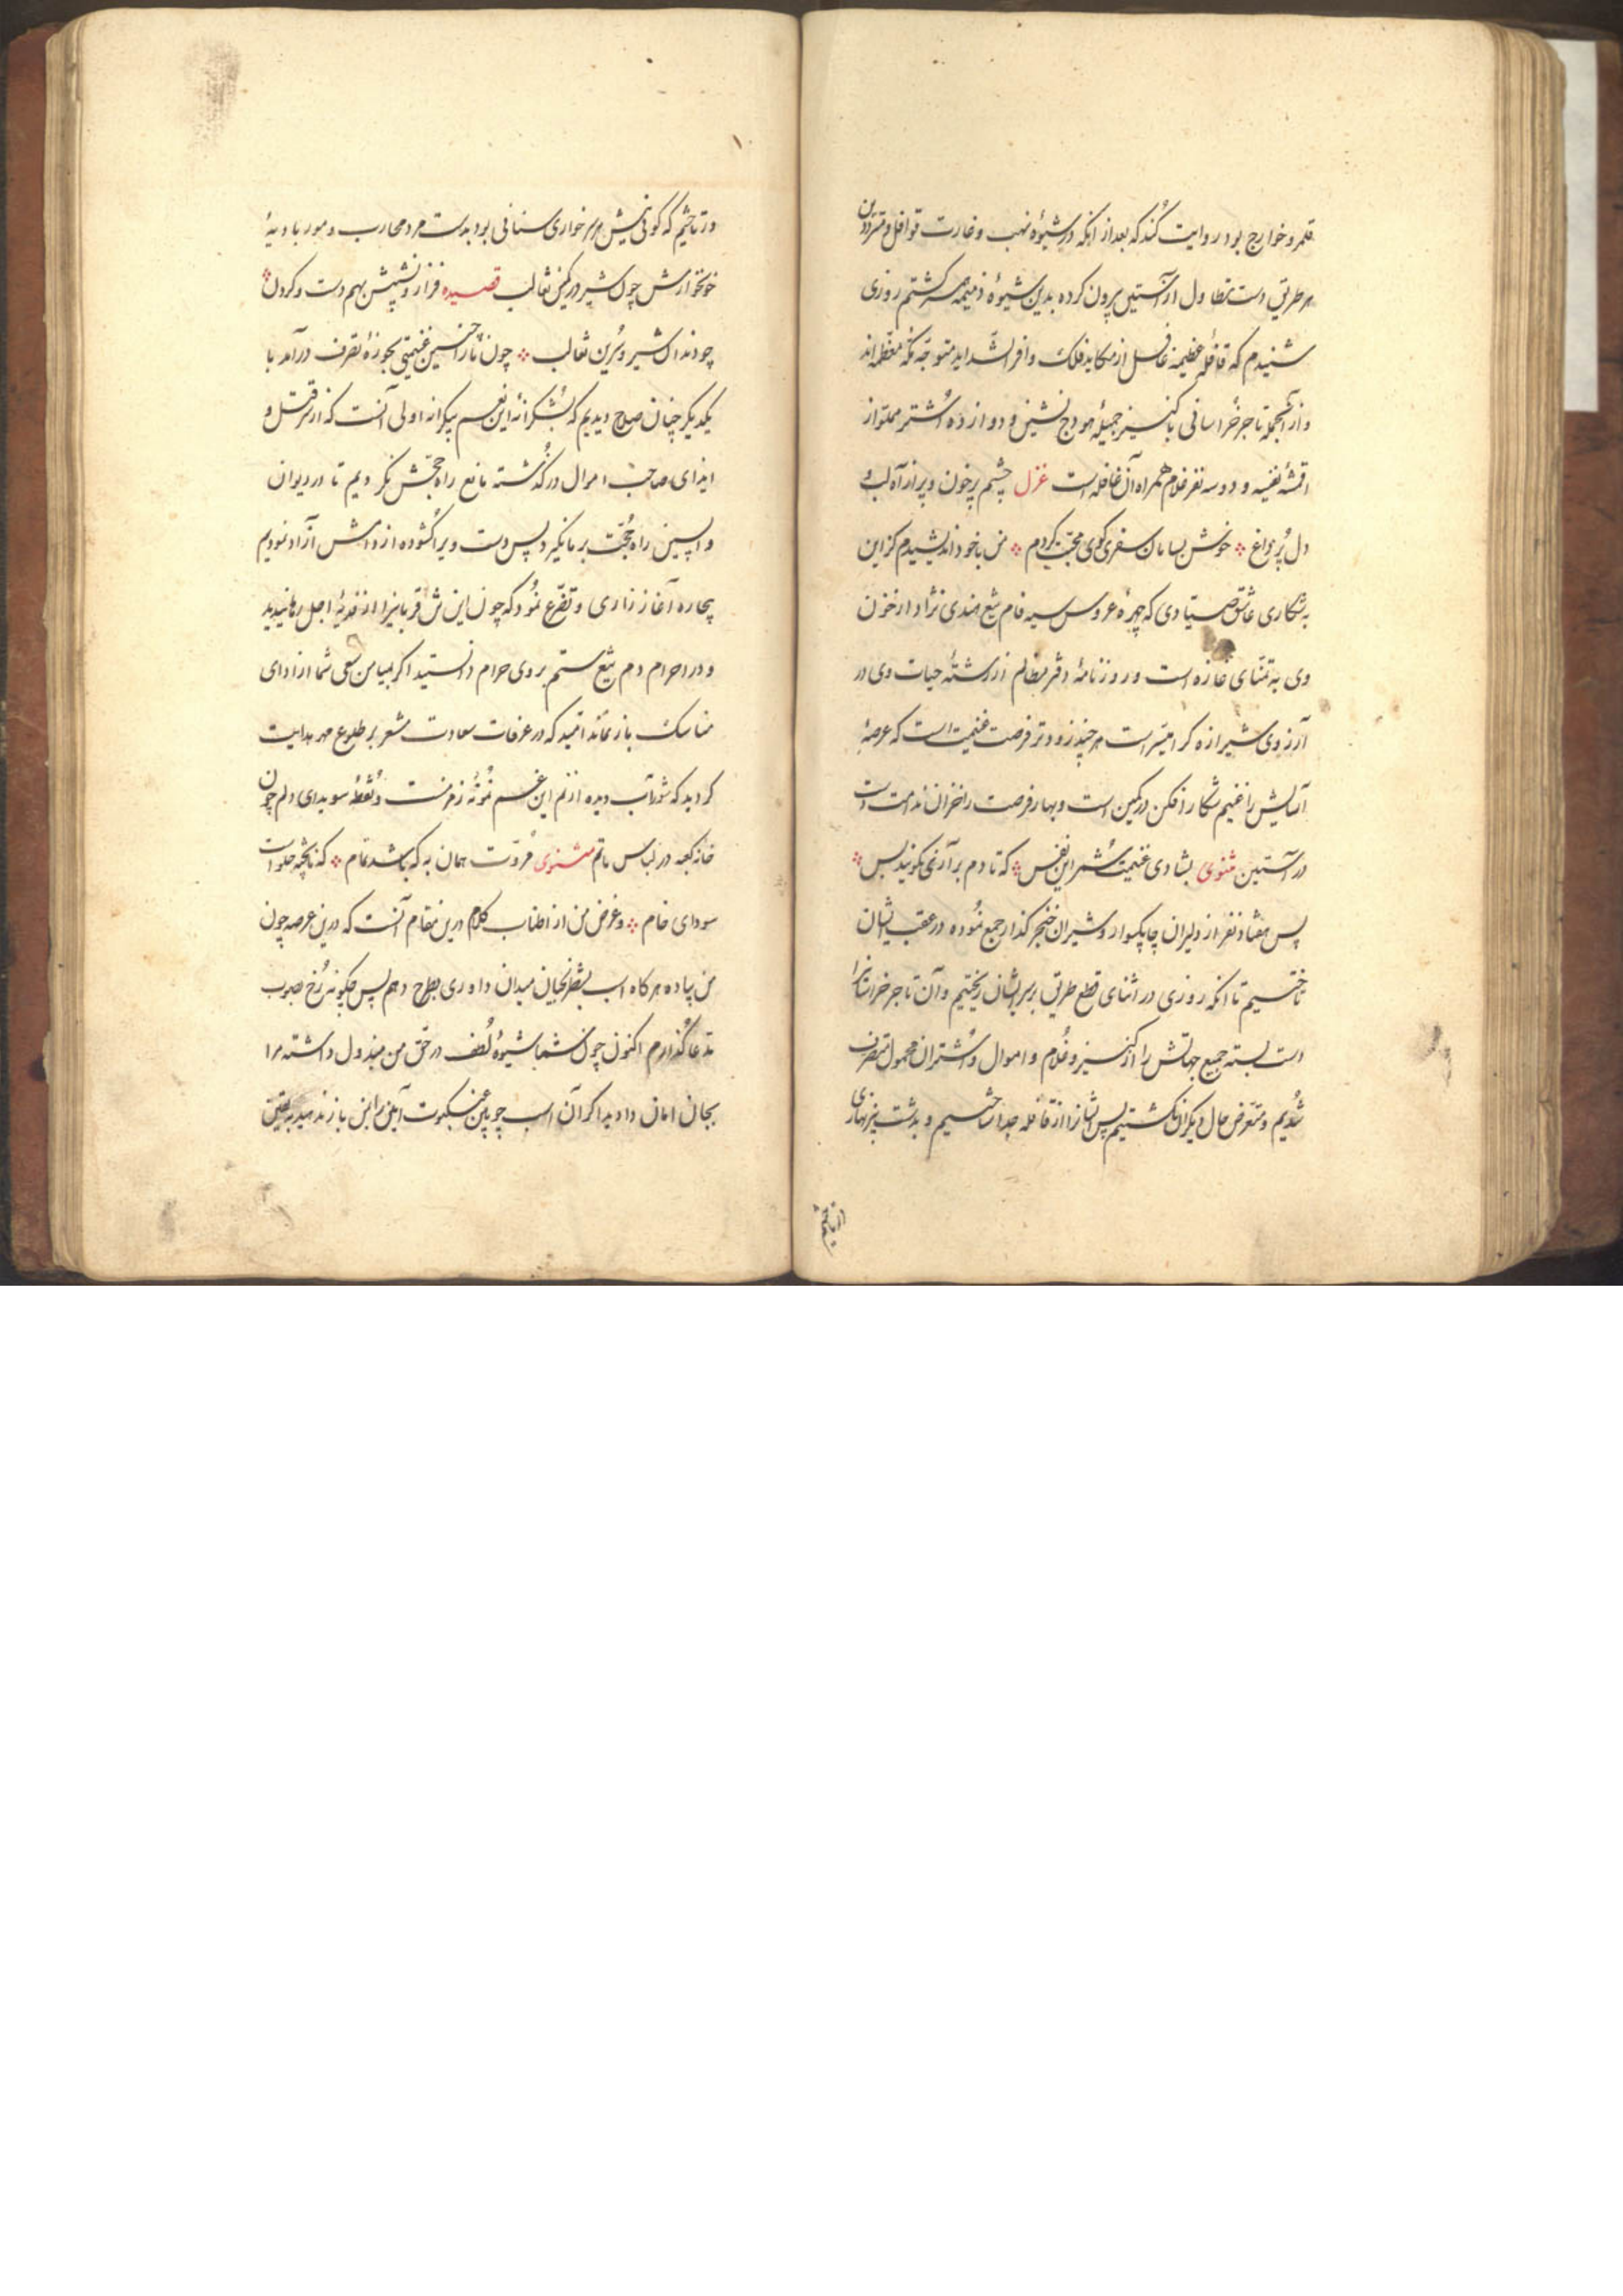 قلمرو خوارج بود روایت کند که بعد از انکه در شیوه نهب و غارت قوافل و مترددین
هر طریق دست تطاول از آستین برون کرده بدین شیوه ذمیمه سمر گشتم روزی
شنیدم که قافله عظیمه غافل از مکاید فلک وافر الشداید متوجه مکه معظمه اند
و از آنجمله تاجر خراسانی با کنیز جمیله هودج نشین و دوازده اشتر مملو از
اقمشه نفیسه و دو سه نفر غلام همراه آن قافله است غزل چشم پر خون و پر از آه لب و
دل پر ز داغ ؞ خوش بسامان سفری کوی محبت کردم ؞ من با خود اندیشیدم کزین
به شکاری عاشق صیادی که چهره عروس سیه فام تیغ هندی نژاد از خون
وی به تمنای غازه است و روزنامه دفتر مظالم از رشته حیات وی در
آرزوی شیرازه گر میسر است هر چند زودتر فرصت غنیمت است که عرصه
آسایش را غنیم شکار افکن در کمین است و بهار فرصت را خزان ندامت دست
در آستین مثنوی بشادی غنیمت شمر این نفس ؞ که تا دم بر آری نگویند بس ؞
پس هفتاد نفر از دلیران چابکسوار و شیران خنجر گذار جمع نموده در عقب ایشان
تاختیم تا انکه روزی در اثنای قطع طریق بر سر ایشان ریختیم و آن تاجر خراسانیرا
دست بسته جمیع جهاتش را از کنیز و غلام و اموال و اشتران محمول متصرف
شدیم و متعرض حال دیگران نگشتیم پس ایشانرا از قافله جدا ساختیم و بدشت پر نهاری
در تاختیم که گوئی نیش هر خواری سنانی بود بدست مرد محارب و مور بادیه
خونخوارش چون شیر در کمین ثعالب قصیده فراز و نشیبش بهم دست و گردن ؞
چو دندان شیر و سرین ثعالب ؞ چون ما را چنین غنیمتی بحوزه تصرف درآمد با
یکدیگر چنان صلاح دیدیم که بشکرانه این نعم بیکرانه اولی آنست که از سر قتل و
ایذای صاحب اموال در گذشته مانع راه حجش نگردیم تا در دیوان
واپسین راه حجت بر ما نگیرد پس دست ویرا گشوده از دامش آزاد نمودیم
بیچاره آغاز زاری و تضرع نمود که چون این تن قربانیرا از فدیه اجل رهانیدید
و در احرام دم تیغ ستم بر وی حرام دانستید اگر بمیامن سعی شما از ادای
مناسک باز نماند امید که در عرفات سعادت مشعر بر طلوع مهر هدایت
گردید که شوراب دیده از نم این غم نمونه زمزمست و نقطه سویدای دلم چون
خانه کعبه در لباس ماتم مثنوی مروت همان به که باشد تمام ؞ که ناپخته حلواست
سودای خام ؞ و غرض من از اطناب کلام درین مقام آنست که درین عرصه چون
من پیاده هرگاه اسب بشطرنجیان میدان داوری بطرح دهم پس چگونه رخ بصوب
مدعا گذارم اکنون چون شما شیوه لطف در حق من مبذول داشته مرا
بجان امان دادید اگر آن اسب چوبین عنکبوت آئین را بمن باز ندهید به یقین
از تاختیم